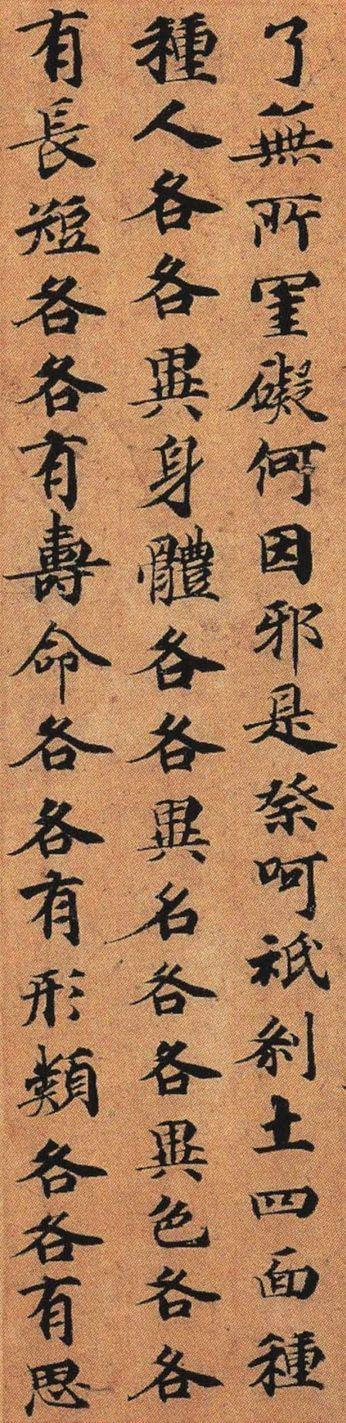 了無所罣礙何因邪是祭呵祇剎土四面種
種人各各異身體各各異名各各異色各各
有長短各各有壽命各各有形類各各有思